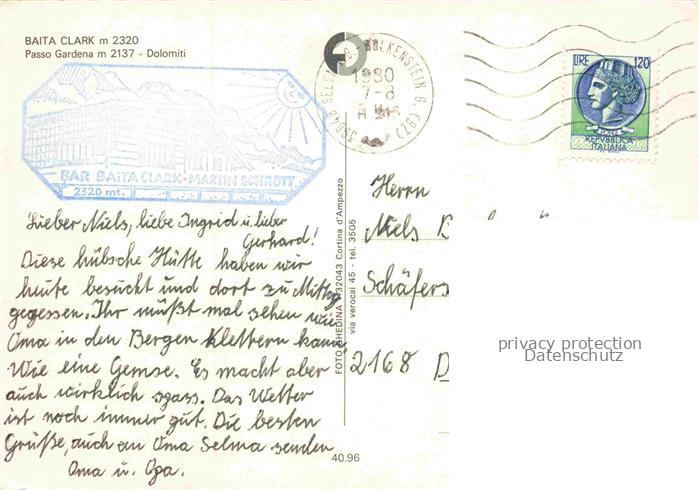 BAITA CLARK m 2320
Passo Gardena m 2137 - Dolomiti
BAR BAITA CLARK - MARTIN SCHROTT
2320 mt.
WOLKENSTEIN G. (BZ)
39048 SELVA
1980
7-8
LIRE 120
REPVBBLICA
ITALIANA
Lieber Niels, liebe Ingrid u. lieber
Gerhard!
Diese hübsche Hütte haben wir
heute besucht und dort zu Mittag
gegessen. Ihr müßt mal sehen wie
Oma in den Bergen klettern kann
Wie eine Gemse. Es macht aber
auch wirklich spass. Das Wetter
ist noch immer gut. Die besten
Grüße, auch an Oma Selma senden
Oma u. Opa.
FOTO GHEDINA - 32043 Cortina d'Ampezzo
via verocai 45 - tel. 3505
40.96
Herrn
Niels
Schäfers
2168 D
privacy protection
Datenschutz